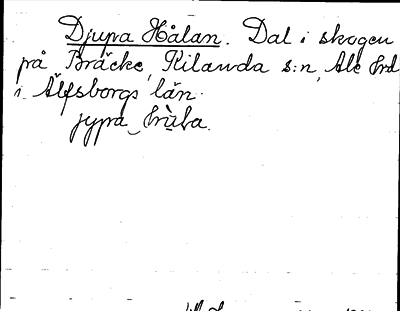 Djupa Hålan. Dal i skogen
på Bräcke, Kilanda s:n, Ale hrd
i Älfsborgs län.
jypa